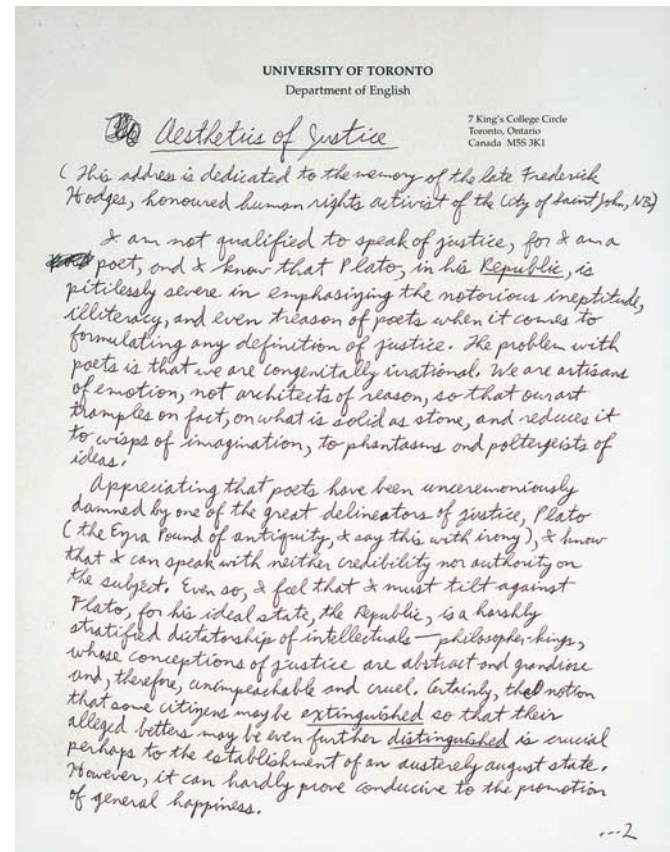 UNIVERSITY OF TORONTO
Department of English
7 King's College Circle
Toronto, Ontario
Canada M5S 3K1
Aesthetics of Justice
(This address is dedicated to the memory of the late Frederick
Hodges, honoured human rights activist of the City of Saint John, NB)
I am not qualified to speak of justice, for I am a
poet, and I know that Plato, in his Republic, is
pitilessly severe in emphasizing the notorious ineptitude,
illiteracy, and even treason of poets when it comes to
formulating any definition of justice. The problem with
poets is that we are congenitally irrational. We are artisans
of emotion, not architects of reason, so that our art
tramples on fact, on what is solid as stone, and reduces it
to wisps of imagination, to phantasms and poltergeists of
ideas.
Appreciating that poets have been unceremoniously
damned by one of the great delineators of justice, Plato
(the Ezra Pound of antiquity, I say this with irony), I know
that I can speak with neither credibility nor authority on
the subject. Even so, I feel that I must tilt against
Plato, for his ideal state, the Republic, is a harshly
stratified dictatorship of intellectuals—philosopher-kings,
whose conceptions of justice are abstract and grandiose
and, therefore, unimpeachable and cruel. Certainly, the notion
that some citizens may be extinguished so that their
alleged betters may be even further distinguished is crucial
perhaps to the establishment of an austerely august state.
However, it can hardly prove conducive to the promotion
of general happiness.
...2